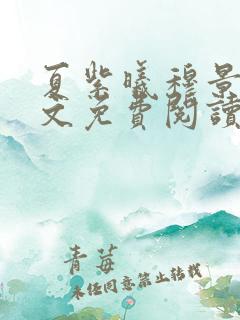 夏紫曦穆景
文免費閱讀
青莓
未经同意禁止转载